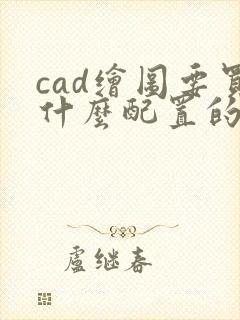 cad繪图要買
什麼配置的
盧继春